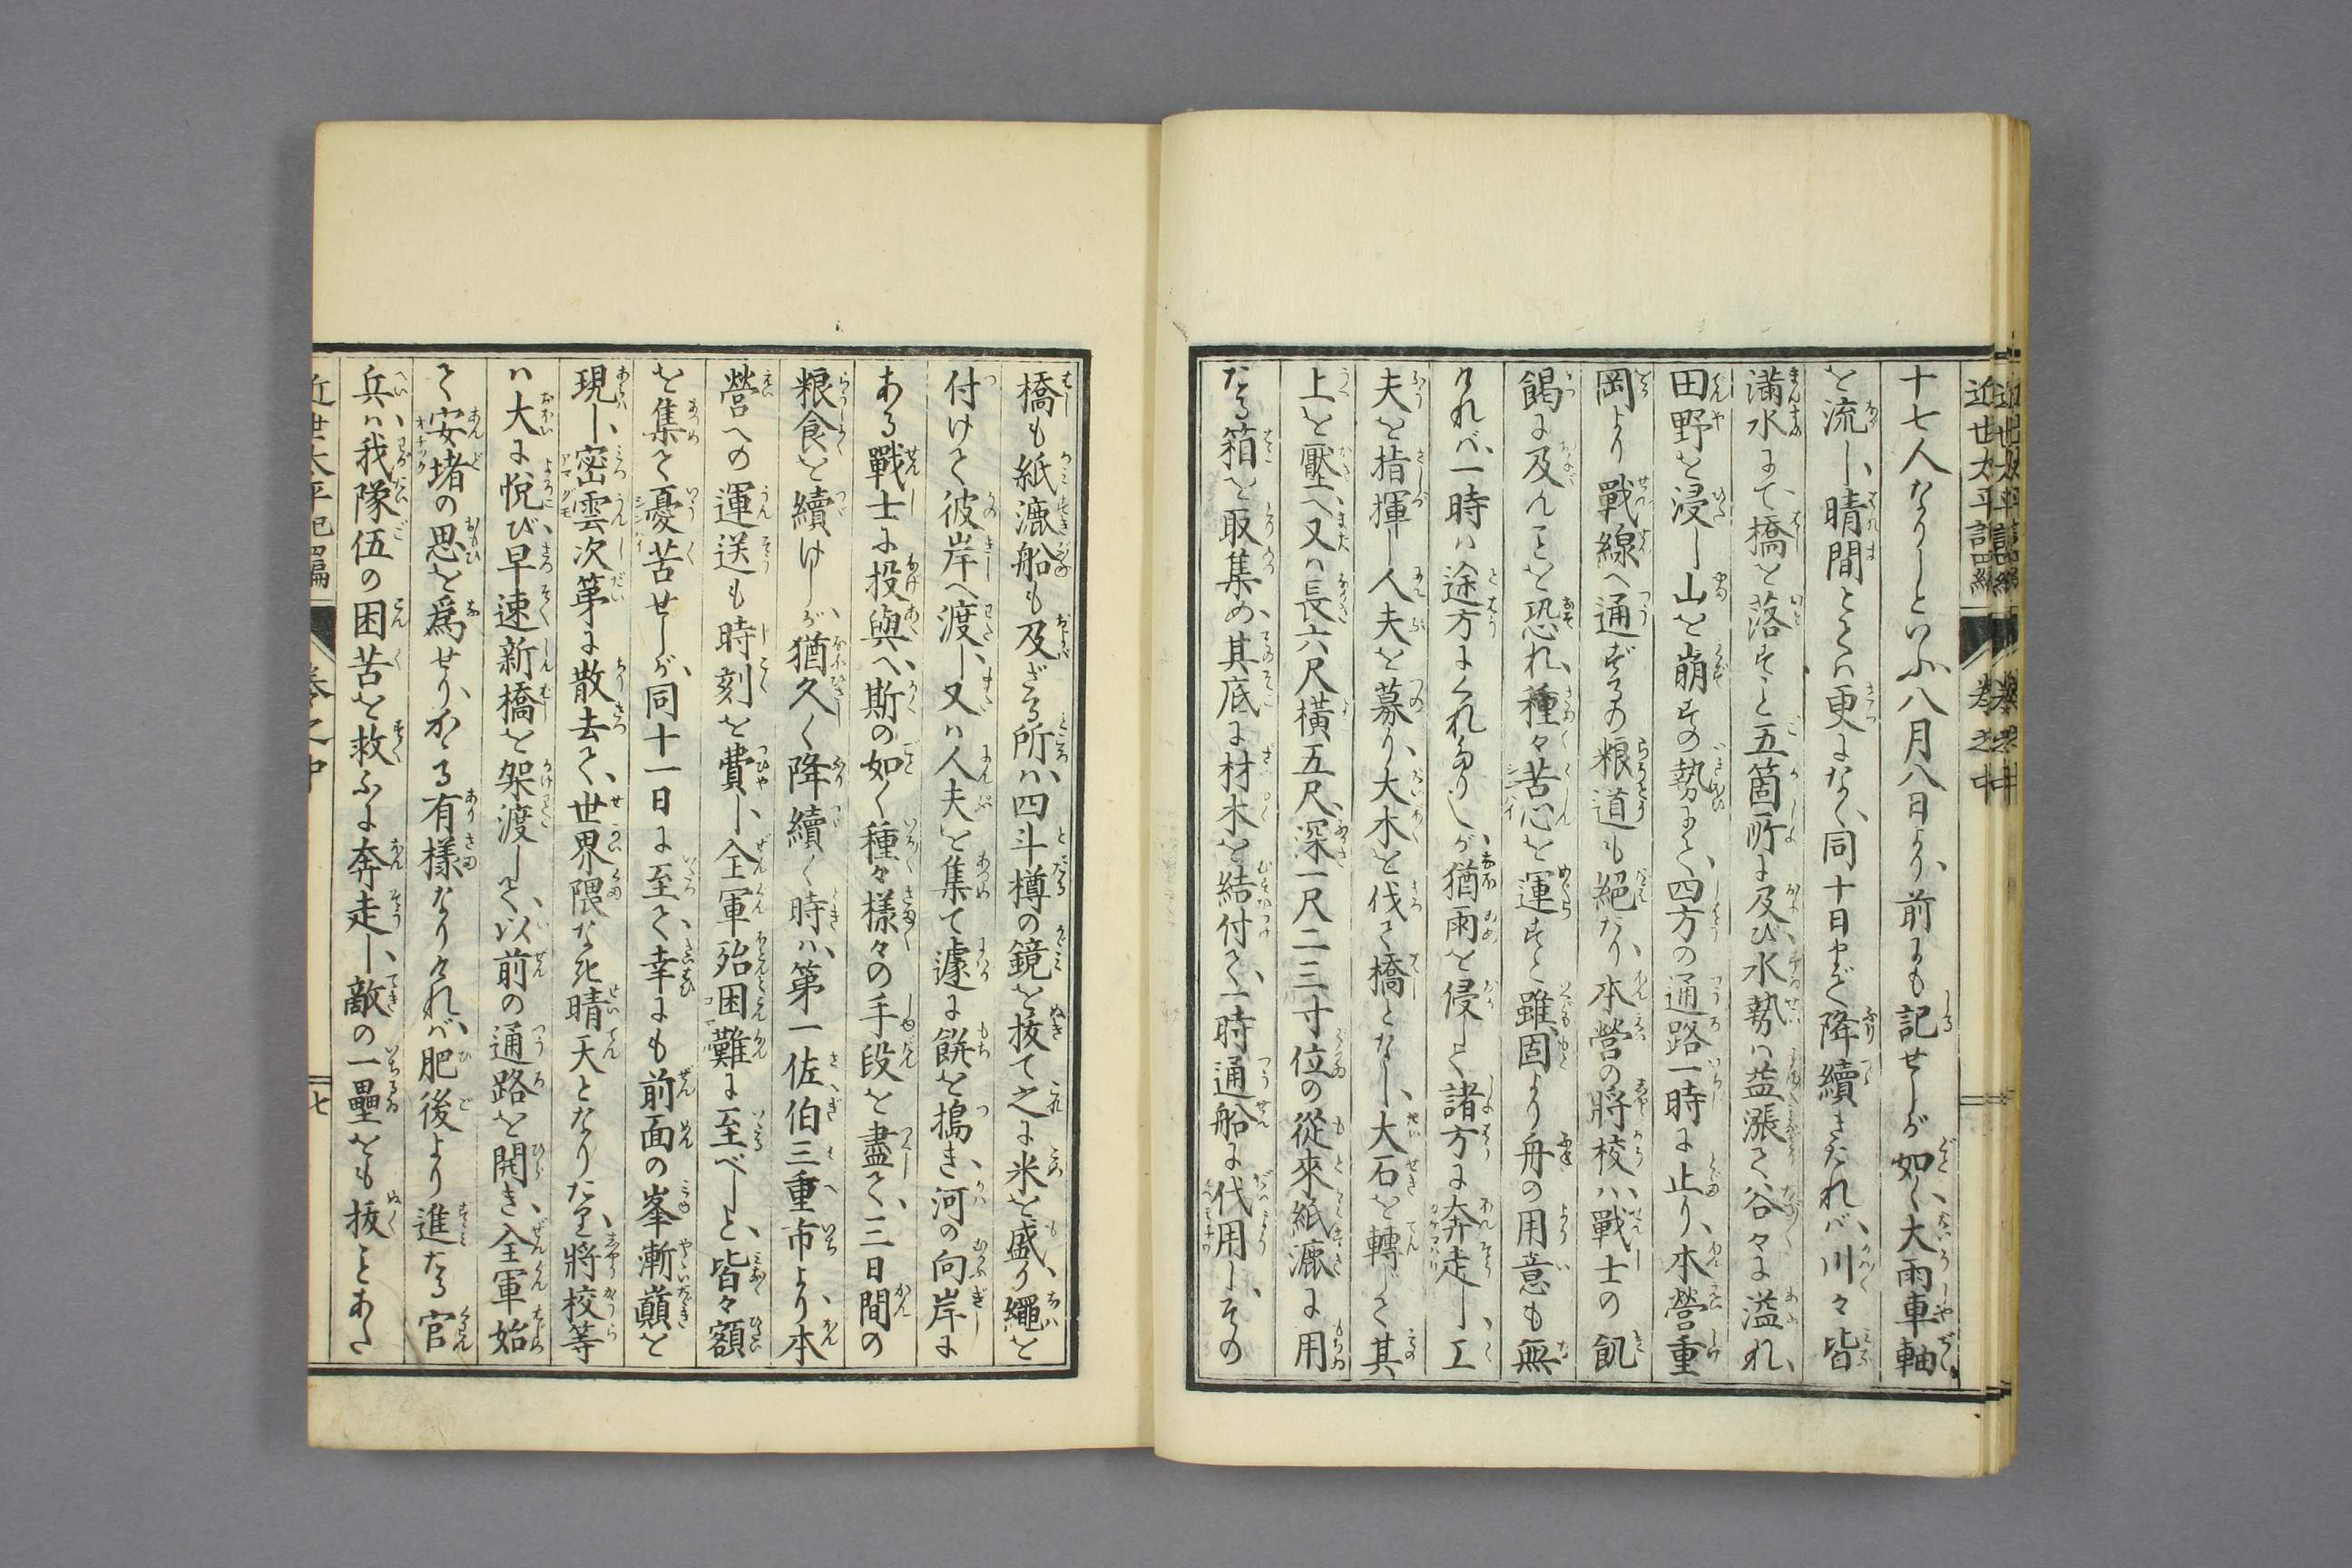 近世太平記四編 巻之中
十七人なりしといふ、八月八日より、前にも記せしが如く、大雨車軸
を流し、晴間とては更になく、同十日まで降續きたれバ、川々皆
満水にて、橋を落すこと五箇所に及び、水勢ハ益漲て、谷々に溢れ、
田野を浸し山を崩すの勢にて、四方の通路一時に止り、本營重
岡より戰線へ通ずるの粮道も絶たり、本營の將校ハ、戰士の飢
餲に及んことを恐れ、種々苦心を運すと雖、固より舟の用意も無
けれバ、一時ハ途方にくれ居りしが、猶雨を侵して諸方に奔走し、工
夫を指揮し人夫を募り、大木を伐て橋となし、大石を轉じて其
上を壓へ、又ハ長六尺横五尺、深一尺二三寸位の從來紙漉に用
たる箱を取集め、其底に材木を結付て、一時通船に代用し、その
橋も紙漉船も及ざる所ハ、四斗樽の鏡を抜て之に米を盛り、繩を
付けて彼岸へ渡し、又ハ人夫を集て遽に餅を搗き、河の向岸に
ある戰士に投與へ、斯の如く種々樣々の手段を盡て、三日間の
粮食を續けしが、猶久く降續く時ハ、第一佐伯三重市より、本
營への運送も時刻を費し、全軍殆困難に至べしと、皆々額
を集て憂苦せしが、同十一日に至て、幸にも前面の峯漸巓を
現し、密雲次第に散去て、世界隈なき晴天となりたり、將校等
ハ大に悦び、早速新橋を架渡して、以前の通路を開き、全軍始
て安堵の思を爲せり、かゝる有樣なりけれバ、肥後より進たる官
兵ハ、我隊伍の困苦を救ふに奔走し、敵の一壘をも抜ことあた
近世太平記四編 巻之中 七